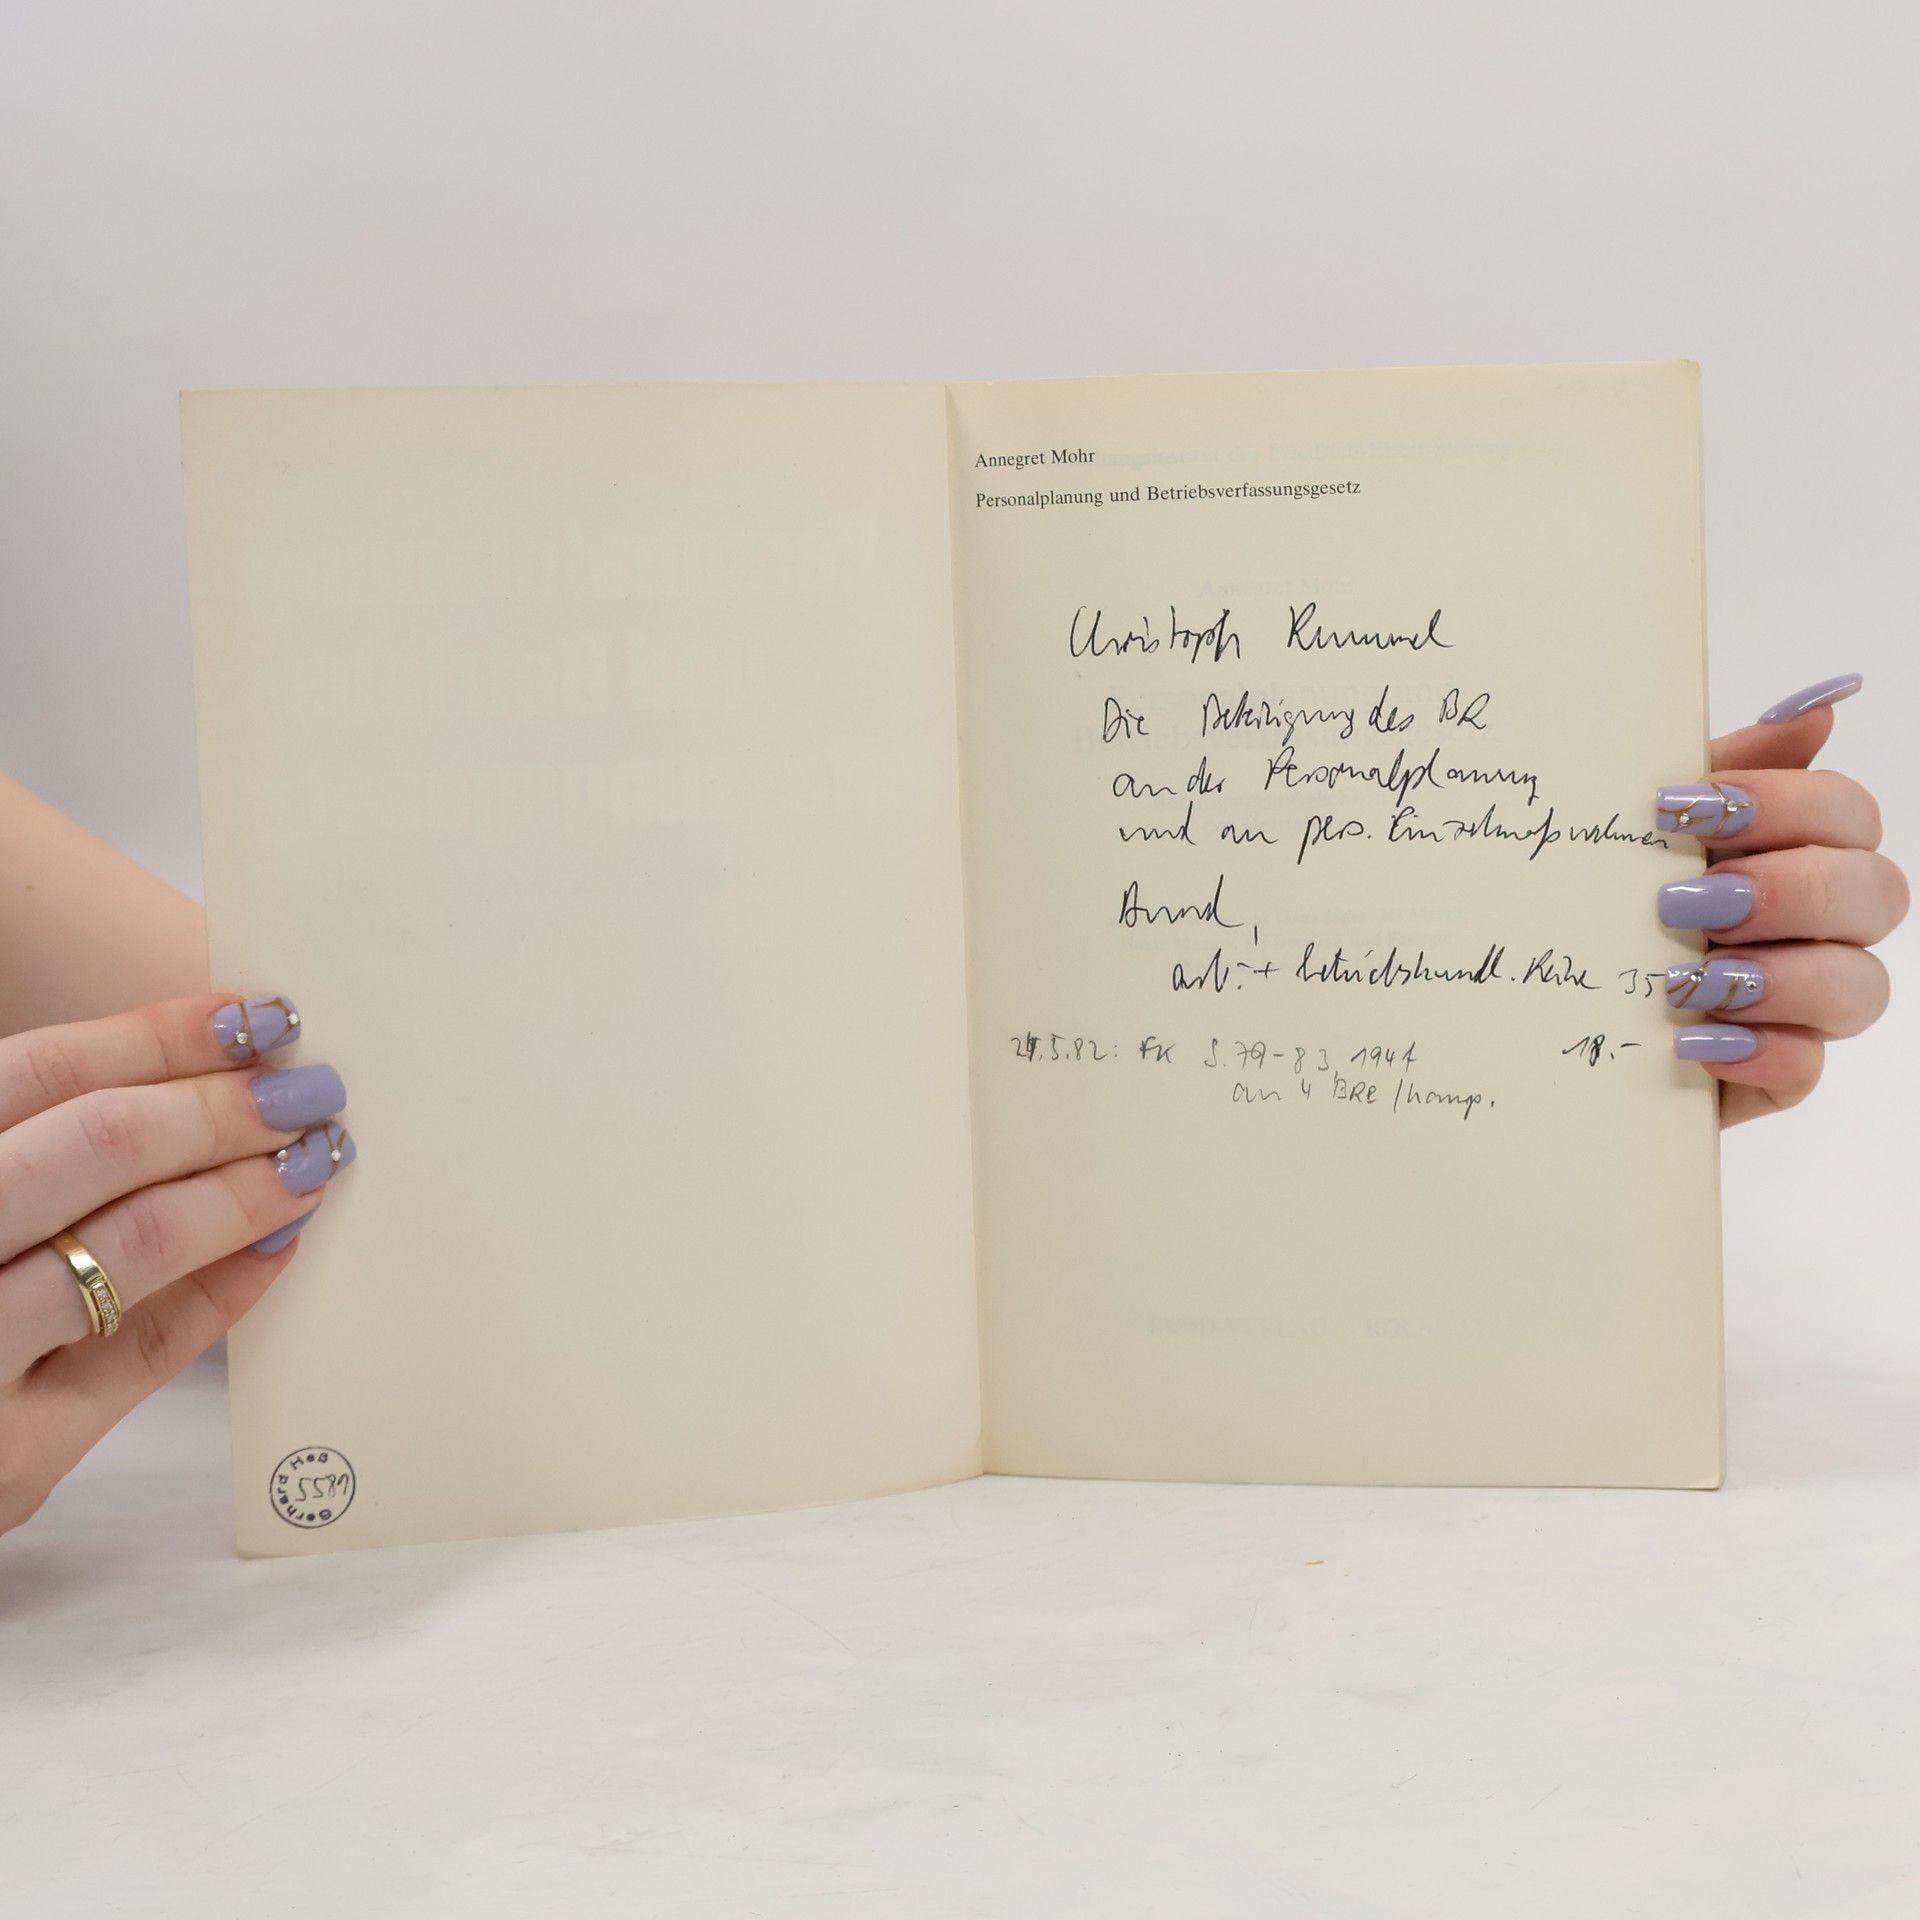 Annegret Mohr
Personalplanung und Betriebsverfassungsgesetz
Christoph Rummel
Die Beteiligung des BR
an der Personalplanung
und an pers. Einzelmaßnahmen
Bund,
arb.- + betriebskundl. Reihe 35
5.82: FK S. 79-83, 18.-
an 4 BRe
Gerhard Heß
5581